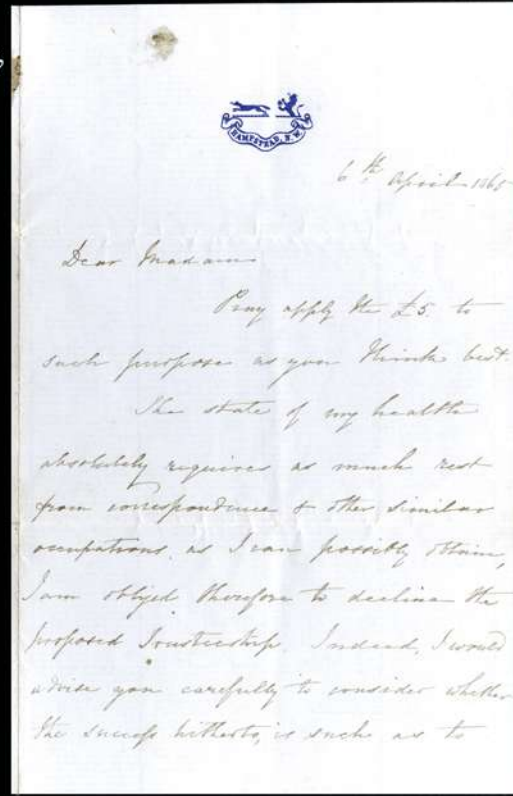 HAMPSTEAD. N.W.
6th April 1865
Dear Madam
Pray apply the £5 to
such purpose as you think best.
The state of my health
absolutely requires as much rest
from correspondence & other similar
occupations, as I can possibly obtain,
I am obliged therefore to decline the
proposed Trusteeship. Indeed, I would
advise you carefully to consider whether
the success hitherto, is such as to